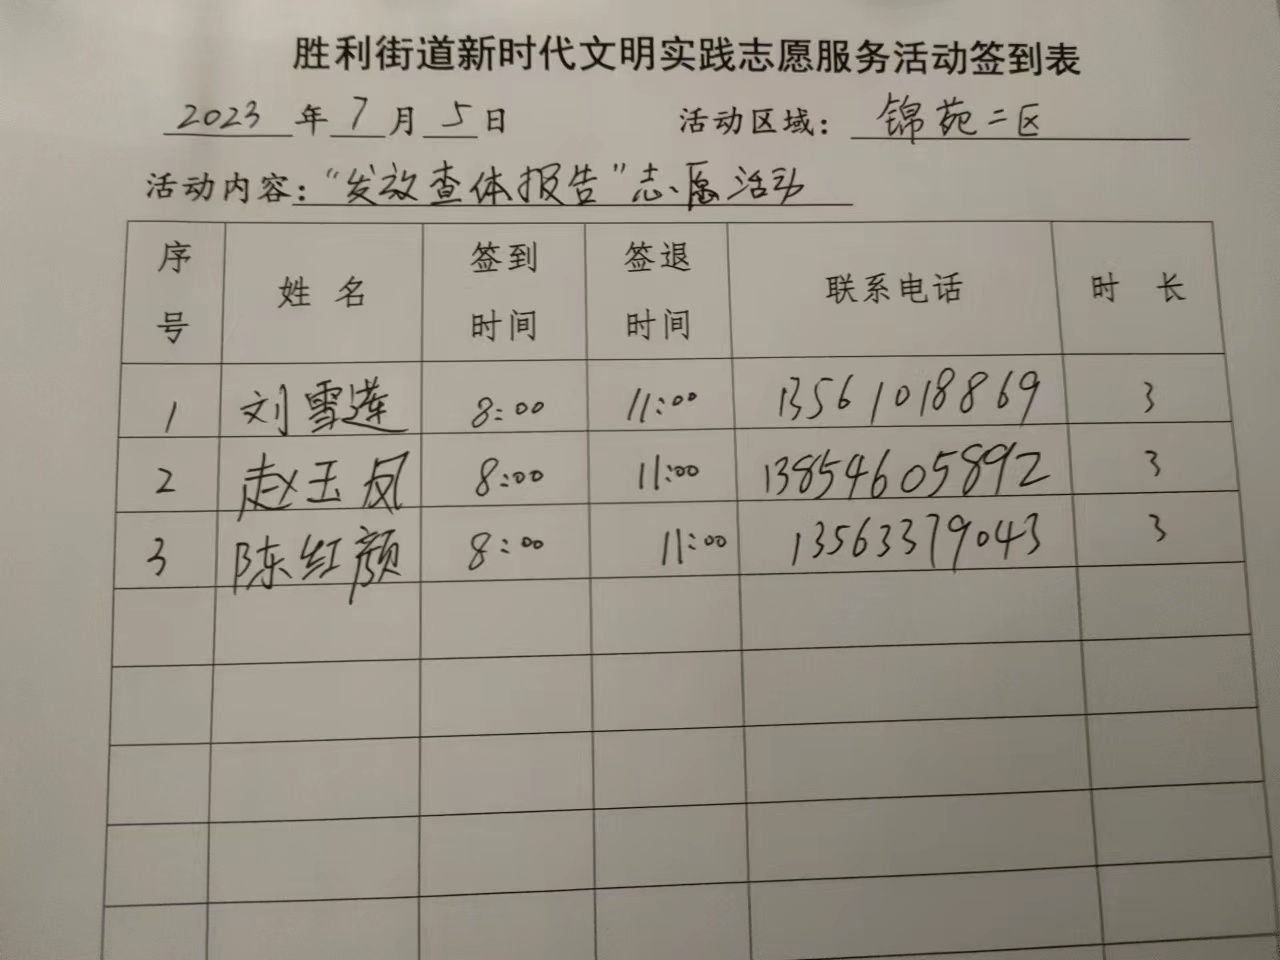 胜利街道新时代文明实践志愿服务活动签到表
2023年7月5日 活动区域：锦苑二区
活动内容：“发放查体报告”志愿活动
序号 姓名 签到时间 签退时间 联系电话 时长
1 刘雪莲 8:00 11:00 13561018869 3
2 赵玉凤 8:00 11:00 13854605892 3
3 陈红颜 8:00 11:00 13563379043 3